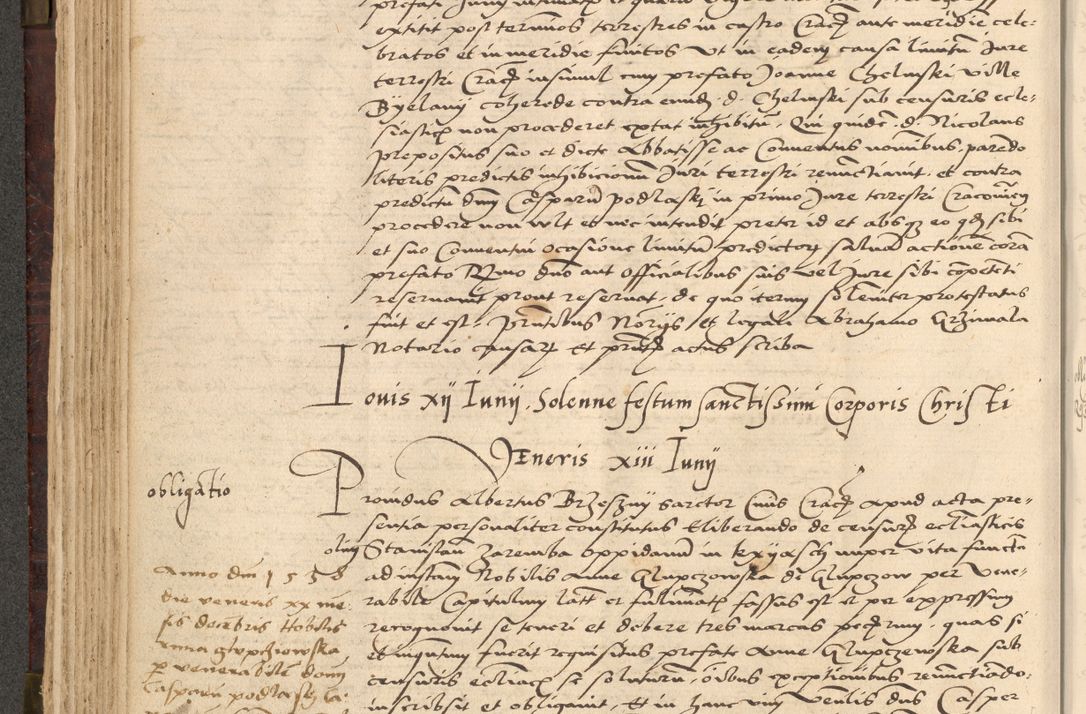 extitit post terminos terrestres in castro Cracz ante meridie cele-
bratos et in meridie finitos Ut in eadem causa limitu Jure
terrestri Cracz insimul cum prefato Joanne Chelmski ville
Byelany coherede contra eund. d. Chelmski sub censuris ecle-
siasticz non procederet extat inhibitu. Qui quide. d. Nicolaus
prepositus suo et dicte Abbatisse ac Conventus nominibus. paredo
literis predictis inhibicionu Juri terrestri renuctiavit. et contra
predictu dnu Casparu podlasky in primo Jure terrestri Cracovien
procedere non vult et nec intendit preter id et absqz eo qd sibi
et suo Conventui ocasione limitu predictorz salva actione cora
prefato Rmo dno aut officialibus suis vel Jure sibi copeteti
reservavit prout reservat. de quo iterum soleniter protestatus
fuit et est. Pntibus Norijs et legali Abrahamo Grzimala
Notario causarz et pntiu actus scriba
Jovis xij Junij. Solenne festum sanctissimi Corporis Christi
Veneris xiii Junij
obligatio
Providus Albertus Brzeszny sartor Civis Cracz apud acta pre-
sentia personaliter constitutus et liberando de censurz eccliasticis
olim Stanislau Zaremba oppidanu in kxyasch nuper vita functo
ad instam Nobilis Anne Glupczowska de Glupczow per Vene-
rabile Capitulum latt et fulminatz fassus est et per expressum
recognovit se teneri et debere tres marcas pecz num. quas si
et inquatum fuerit requisitus prefate Anne Glupczewska sub
censuris eccliacz se soluturu. oibus exceptionibus renuctiado.
inscribsit et obligavit. Et in hanc vim Venlis dns Casper
Anno dni 1558
die veneris xx me-
sis decebris Nobilis
Anna glupchiowska
p venerabile dom
Casparu podlasky ca-